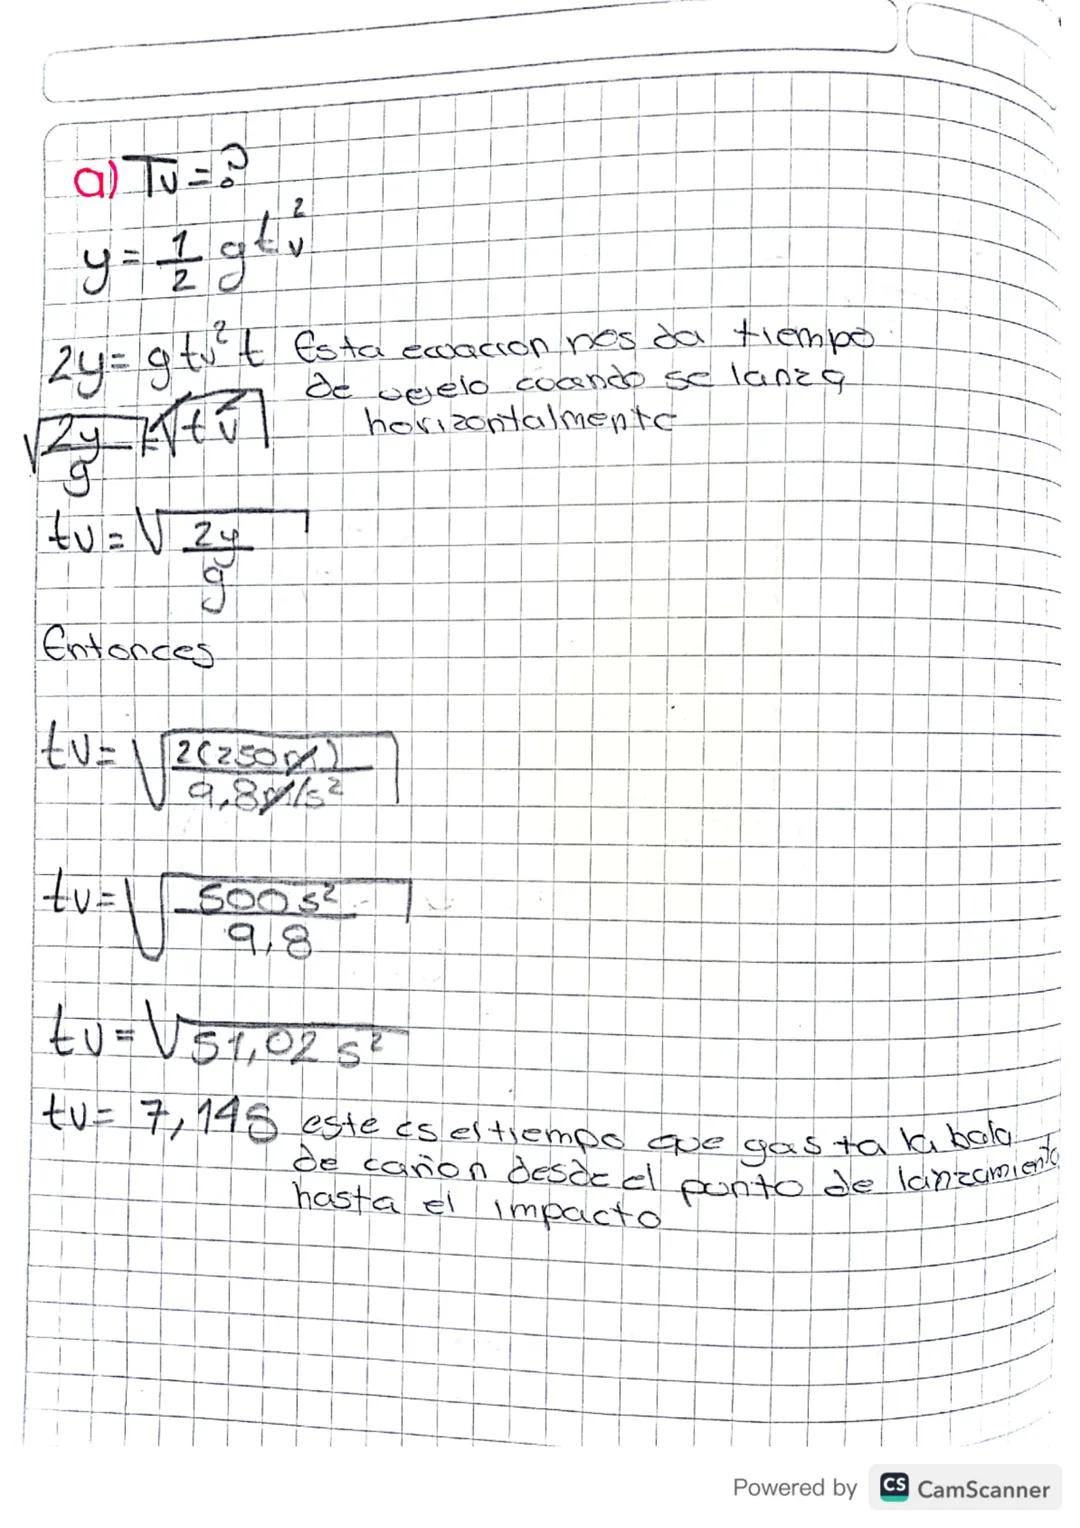 a) Tv=?
y= 1/2 gtv²
2y= gtv²t Esta ecuacion nos da tiempo
de vuelo cuando se lanza
horizontalmente
√2y/g = √tv²
tv= √2y/g
Entonces
tv= √2(250m)/9,8m/s²
tv= √500s²/9,8
tv= √51,02 s²
tv= 7,14s este es el tiempo que gasta la bala
de cañon desde el punto de lanzamiento
hasta el impacto
Powered by CS CamScanner